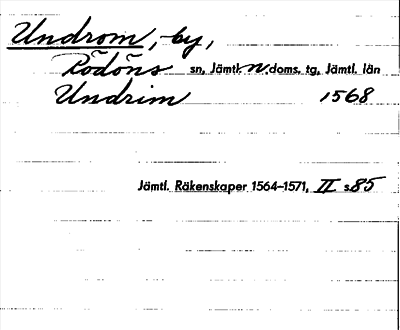 Undrom, by,
Rödöns sn, Jämtl. n. doms. tg, Jämtl. län
Undrim 1568
Jämtl. Räkenskaper 1564-1571, II s. 85